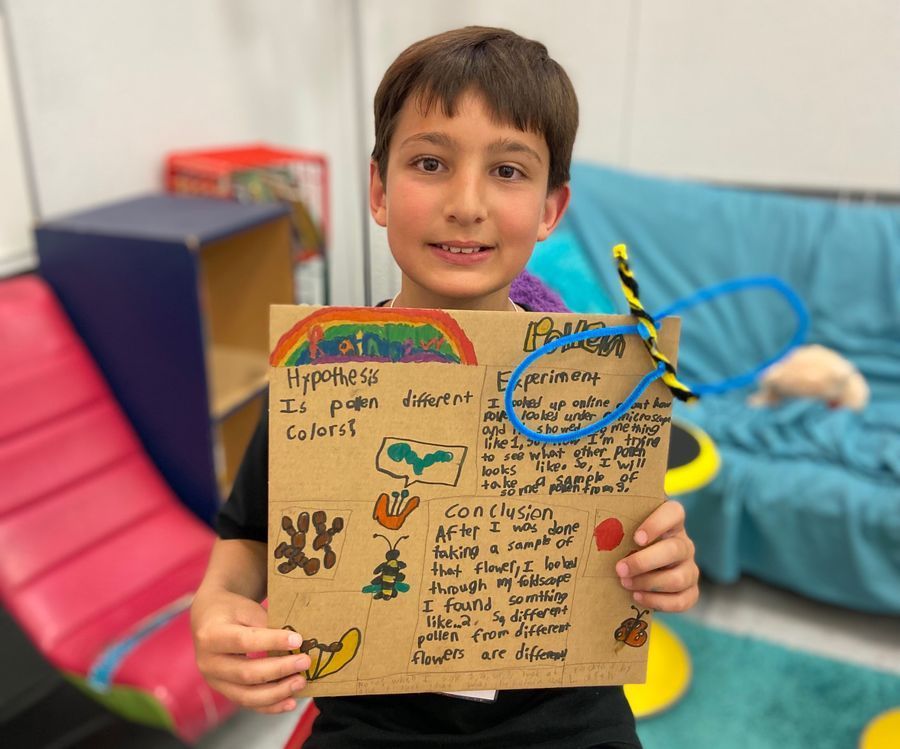 Pollen
Hypothesis
Is pollen different
colors?
Experiment
I looked up online about how
pollen looked under a microscope
and it showed me something
like 1, so now I'm trying
to see what other pollen
looks like. So, I will
take a sample of
some pollen from 3.
Conclusion
After I was done
taking a sample of
that flower, I looked
through my foldscope
I found somthing
like...2. So, different
pollen from different
flowers are different!